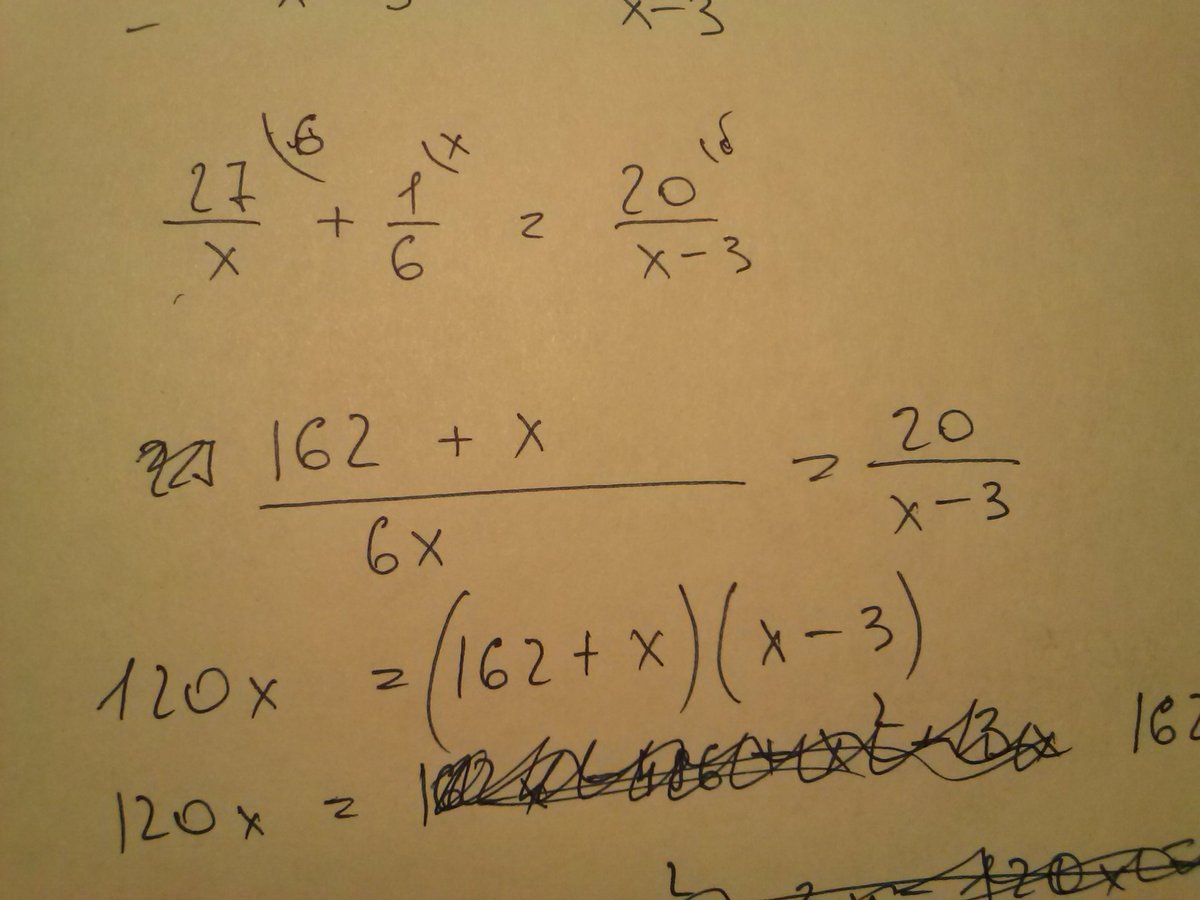 x-3
27/x (6 + 1/6 (x = 20/x-3
162 + x/6x = 20/x-3
120x = (162 + x)(x - 3)
120x = 162